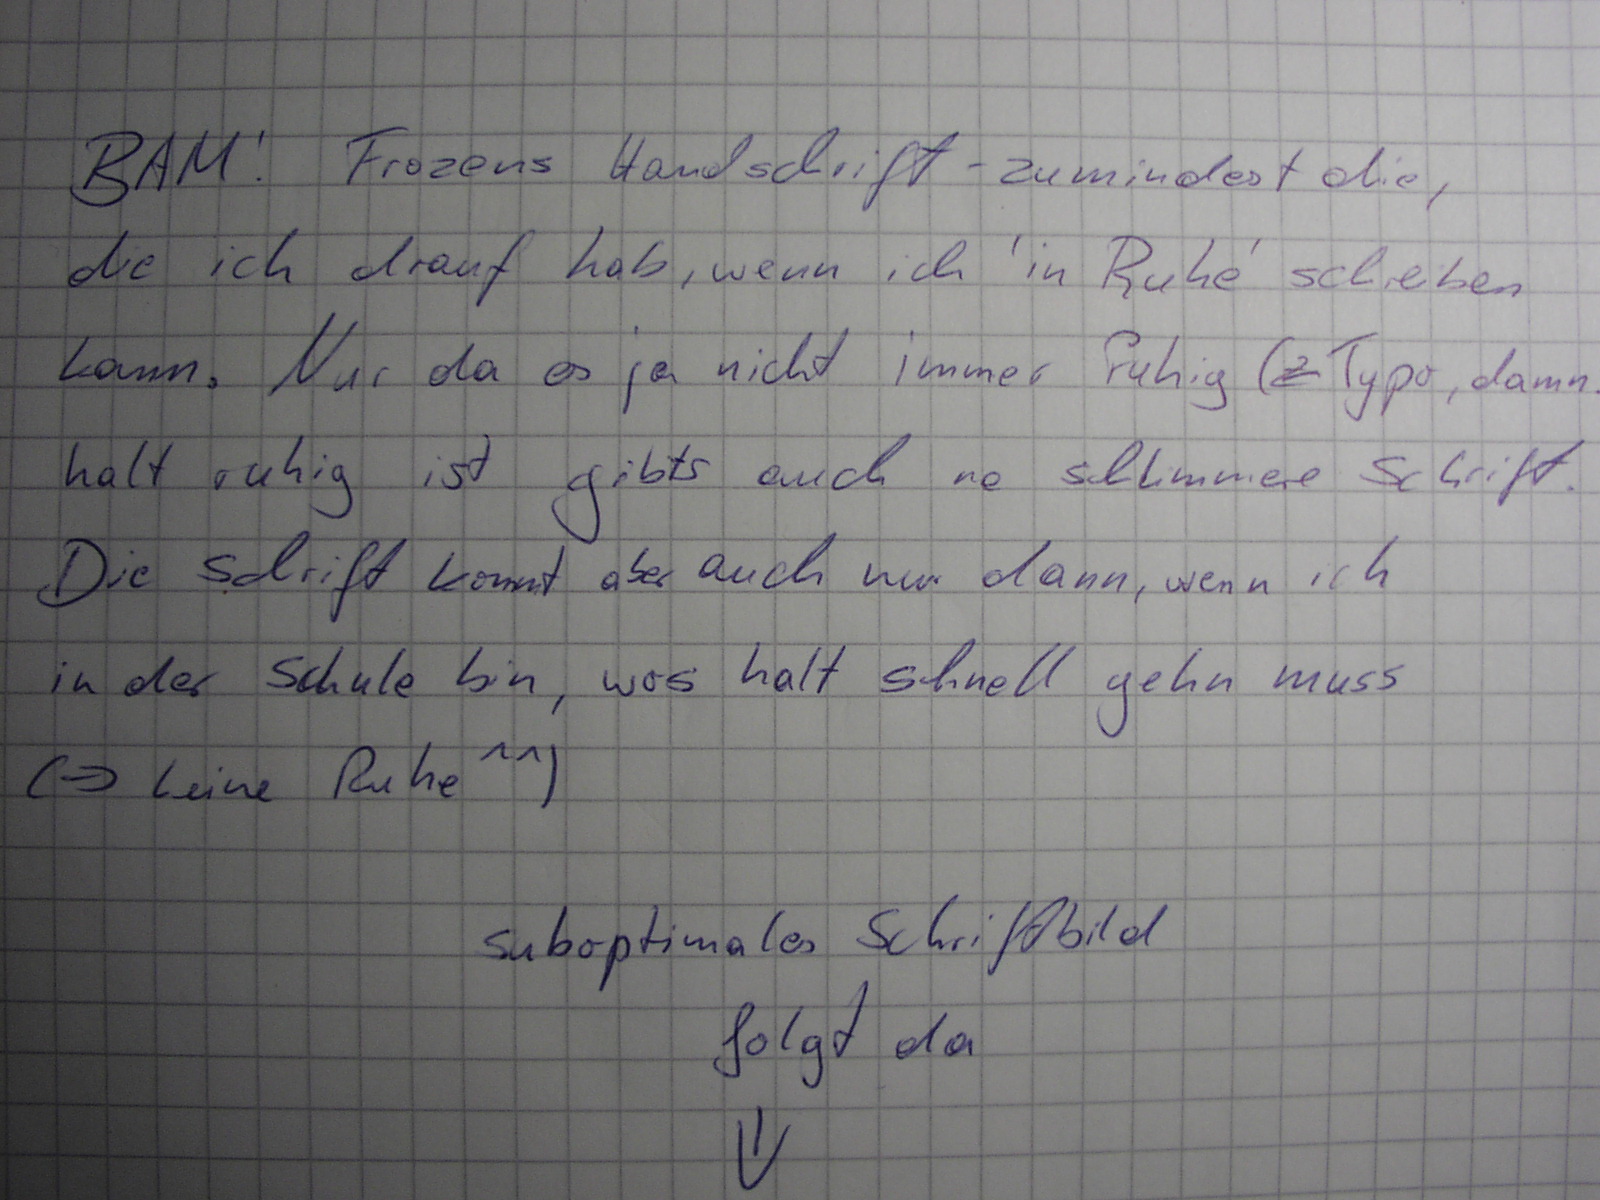 BAM! Frozens Handschrift - zumindest die,
die ich drauf hab, wenn ich 'in Ruhe' schreiben
kann. Nur da es ja nicht immer ruhig (Typo, damn.
halt ruhig ist gibts auch ne schlimmere Schrift.
Die Schrift kommt aber auch nur dann, wenn ich
in der Schule bin, wos halt schnell gehn muss
(=> keine Ruhe ^^)
suboptimales Schriftbild
folgt da